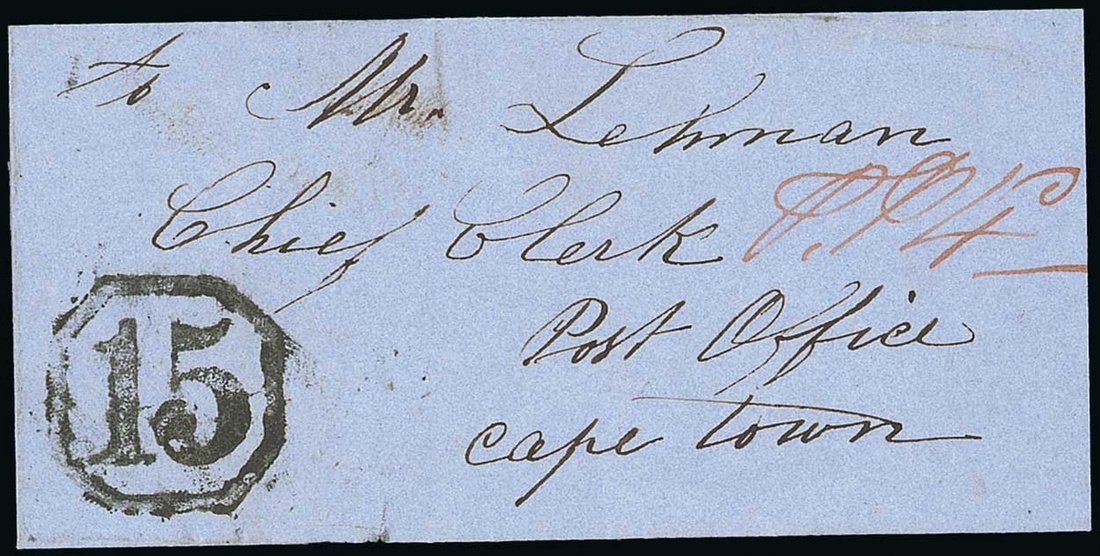 to Mr. Lehman
Chief Clerk
Post Office
Cape Town
15